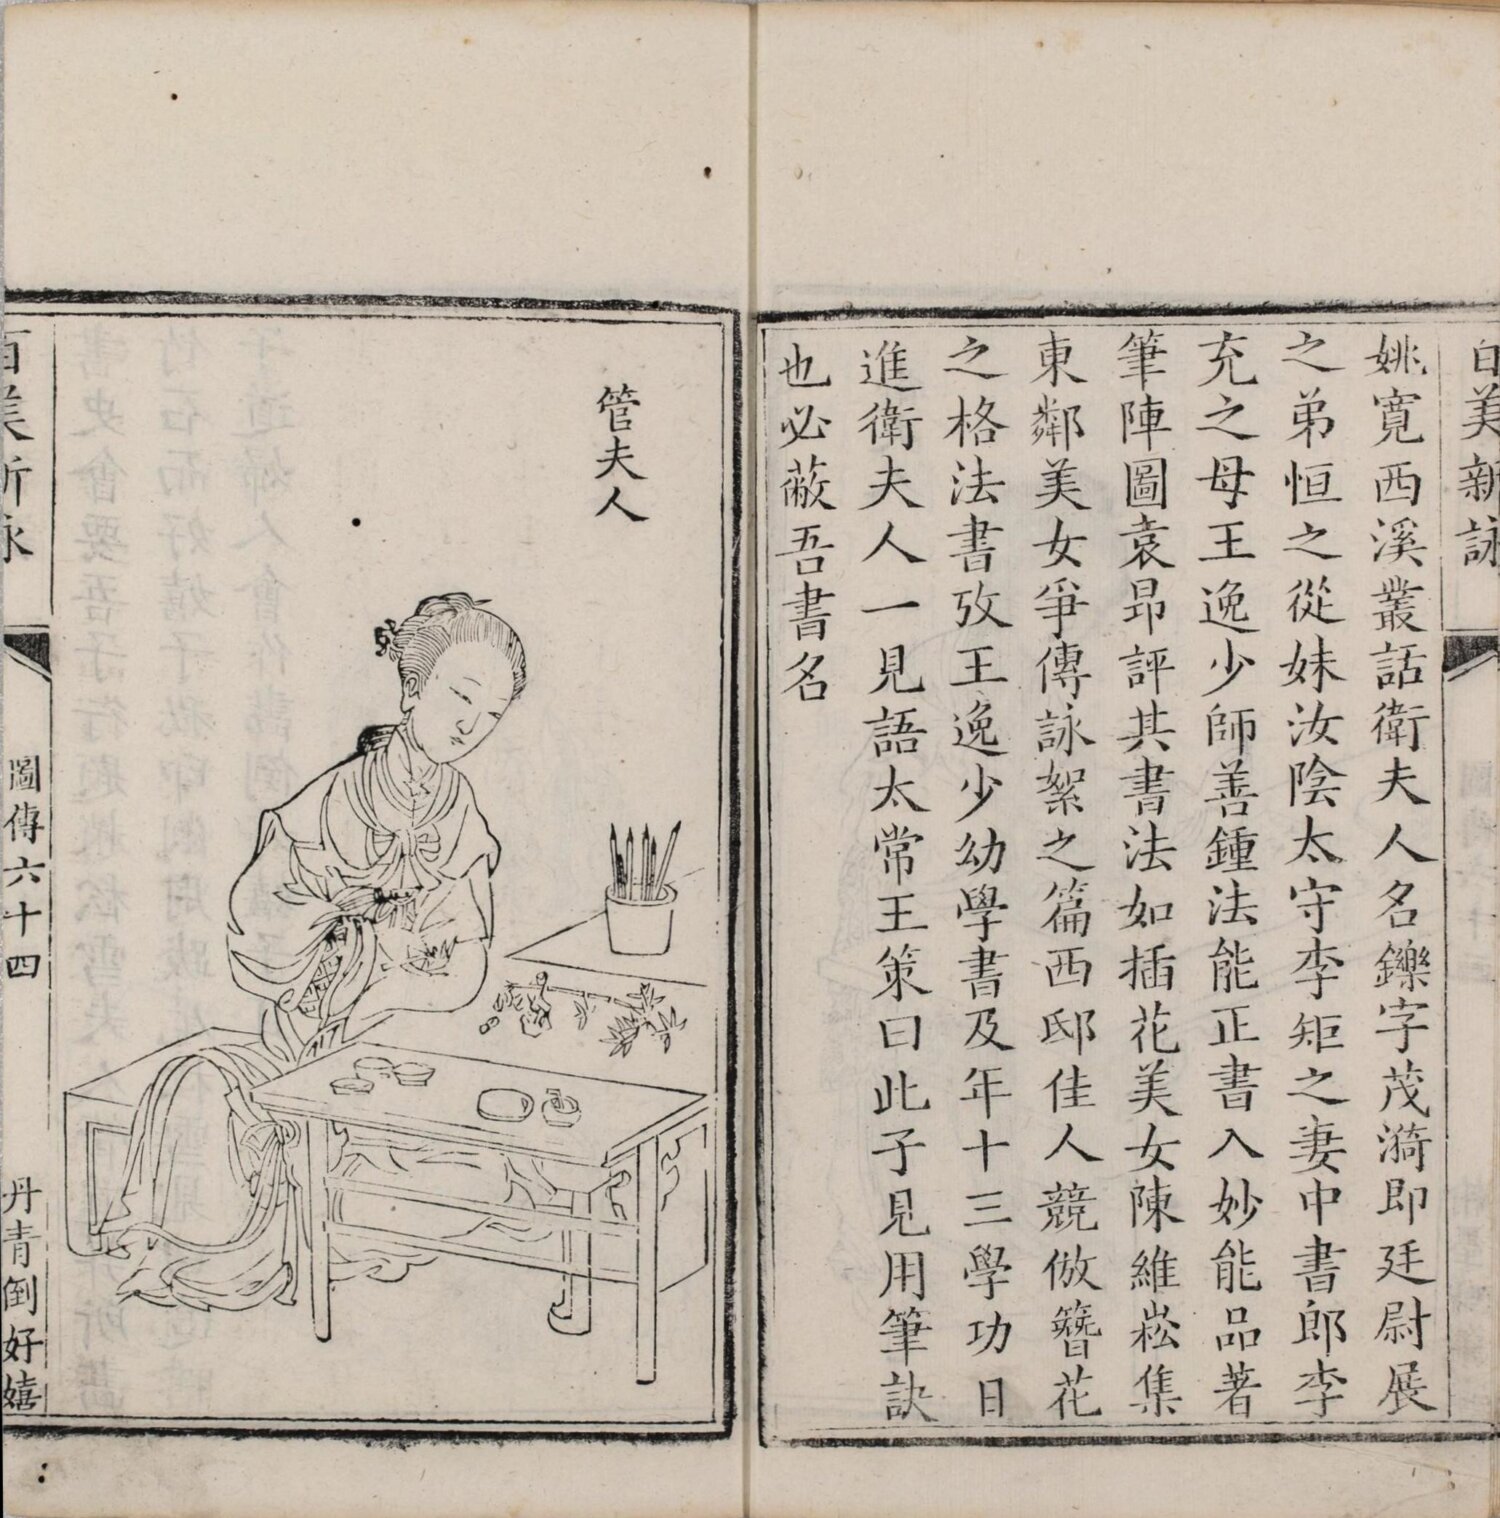 百美新詠
姚寬西溪叢話衛夫人名鑠字茂漪即廷尉展
之弟恒之從妹汝陰太守李矩之妻中書郎李
充之母王逸少師善鍾法能正書入妙能品著
筆陣圖袁昂評其書法如插花美女陳維崧集
東鄰美女爭傳詠絮之篇西邸佳人競倣簪花
之格法書攷王逸少幼學書及年十三學功日
進衛夫人一見語太常王策曰此子見用筆訣
也必蔽吾書名
管夫人
百美新詠
圖傳六十四
丹青倒好嬉